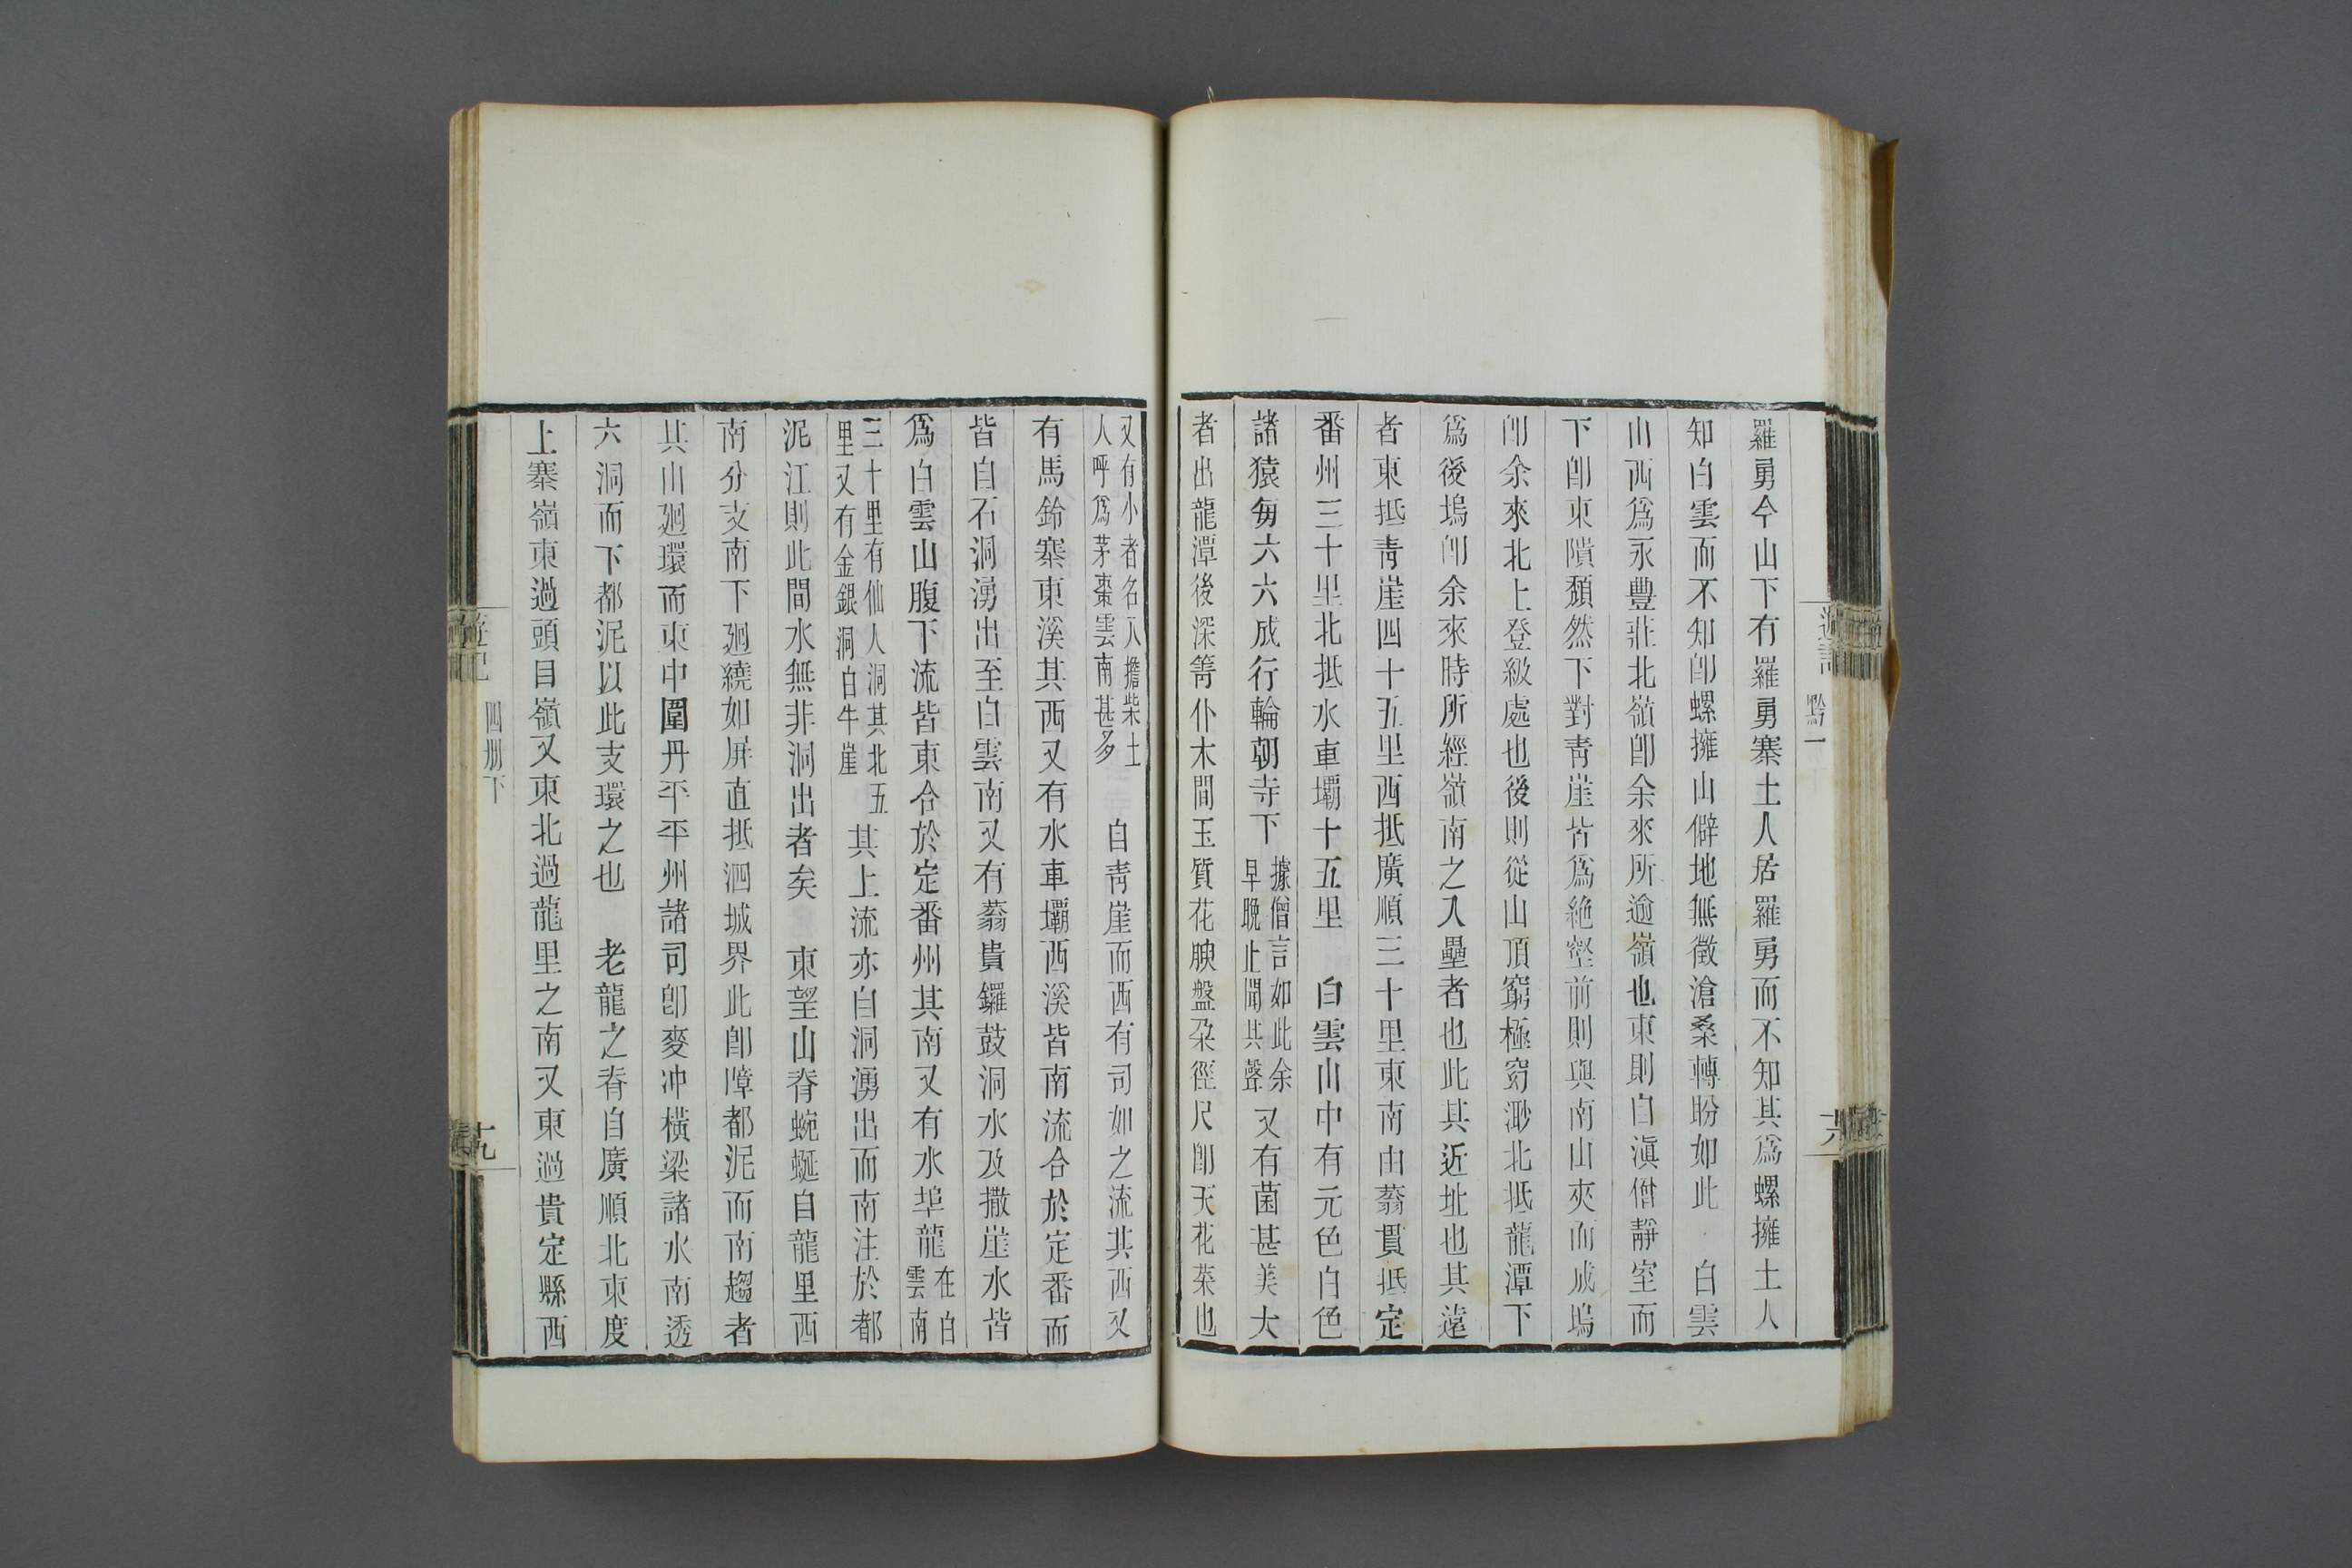 羅勇今山下有羅勇寨土人居羅勇而不知其爲螺擁土人
知白雲而不知卽螺擁山僻地無徵滄桑轉盼如此 白雲
山西爲永豐莊北嶺卽余來所逾嶺也東則自滇僧靜室而
下卽東隤頹然下對靑崖皆爲絶壑前則與南山夾而成塢
卽余來北上登級處也後則從山頂窮極窈渺北抵龍潭下
爲後塢卽余來時所經嶺南之入壘者也此其近址也其遠
者東抵靑崖四十五里西抵廣順三十里東南由蓊貫抵定
番州三十里北抵水車壩十五里 白雲山中有元色白色
諸猿每六六成行輪朝寺下據僧言如此余早晚止聞其聲又有菌甚美大
者出龍潭後深箐仆木間玉質花腴盤朶徑尺卽天花菜也
又有小者名八擔柴土人呼爲茅棗雲南甚多 自靑崖而西有司如之流其西又
有馬鈴寨東溪其西又有水車壩西溪皆南流合於定番而
皆自石洞湧出至白雲南又有蓊貴鑼鼓洞水及撒崖水皆
爲白雲山腹下流皆東合於定番州其南又有水埠龍在白雲南
三十里有仙人洞其北五里又有金銀洞白牛崖其上流亦自洞湧出而南注於都
泥江則此間水無非洞出者矣 東望山脊蜿蜒自龍里西
南分支南下廻繞如屛直抵泗城界此卽障都泥而南趨者
其山廻環而東中圍丹平平州諸司卽麥冲橫梁諸水南透
六洞而下都泥以此支環之也 老龍之脊自廣順北東度
上寨嶺東過頭目嶺又東北過龍里之南又東過貴定縣西
遊記
黔一
十六
遊記
四册下
十九